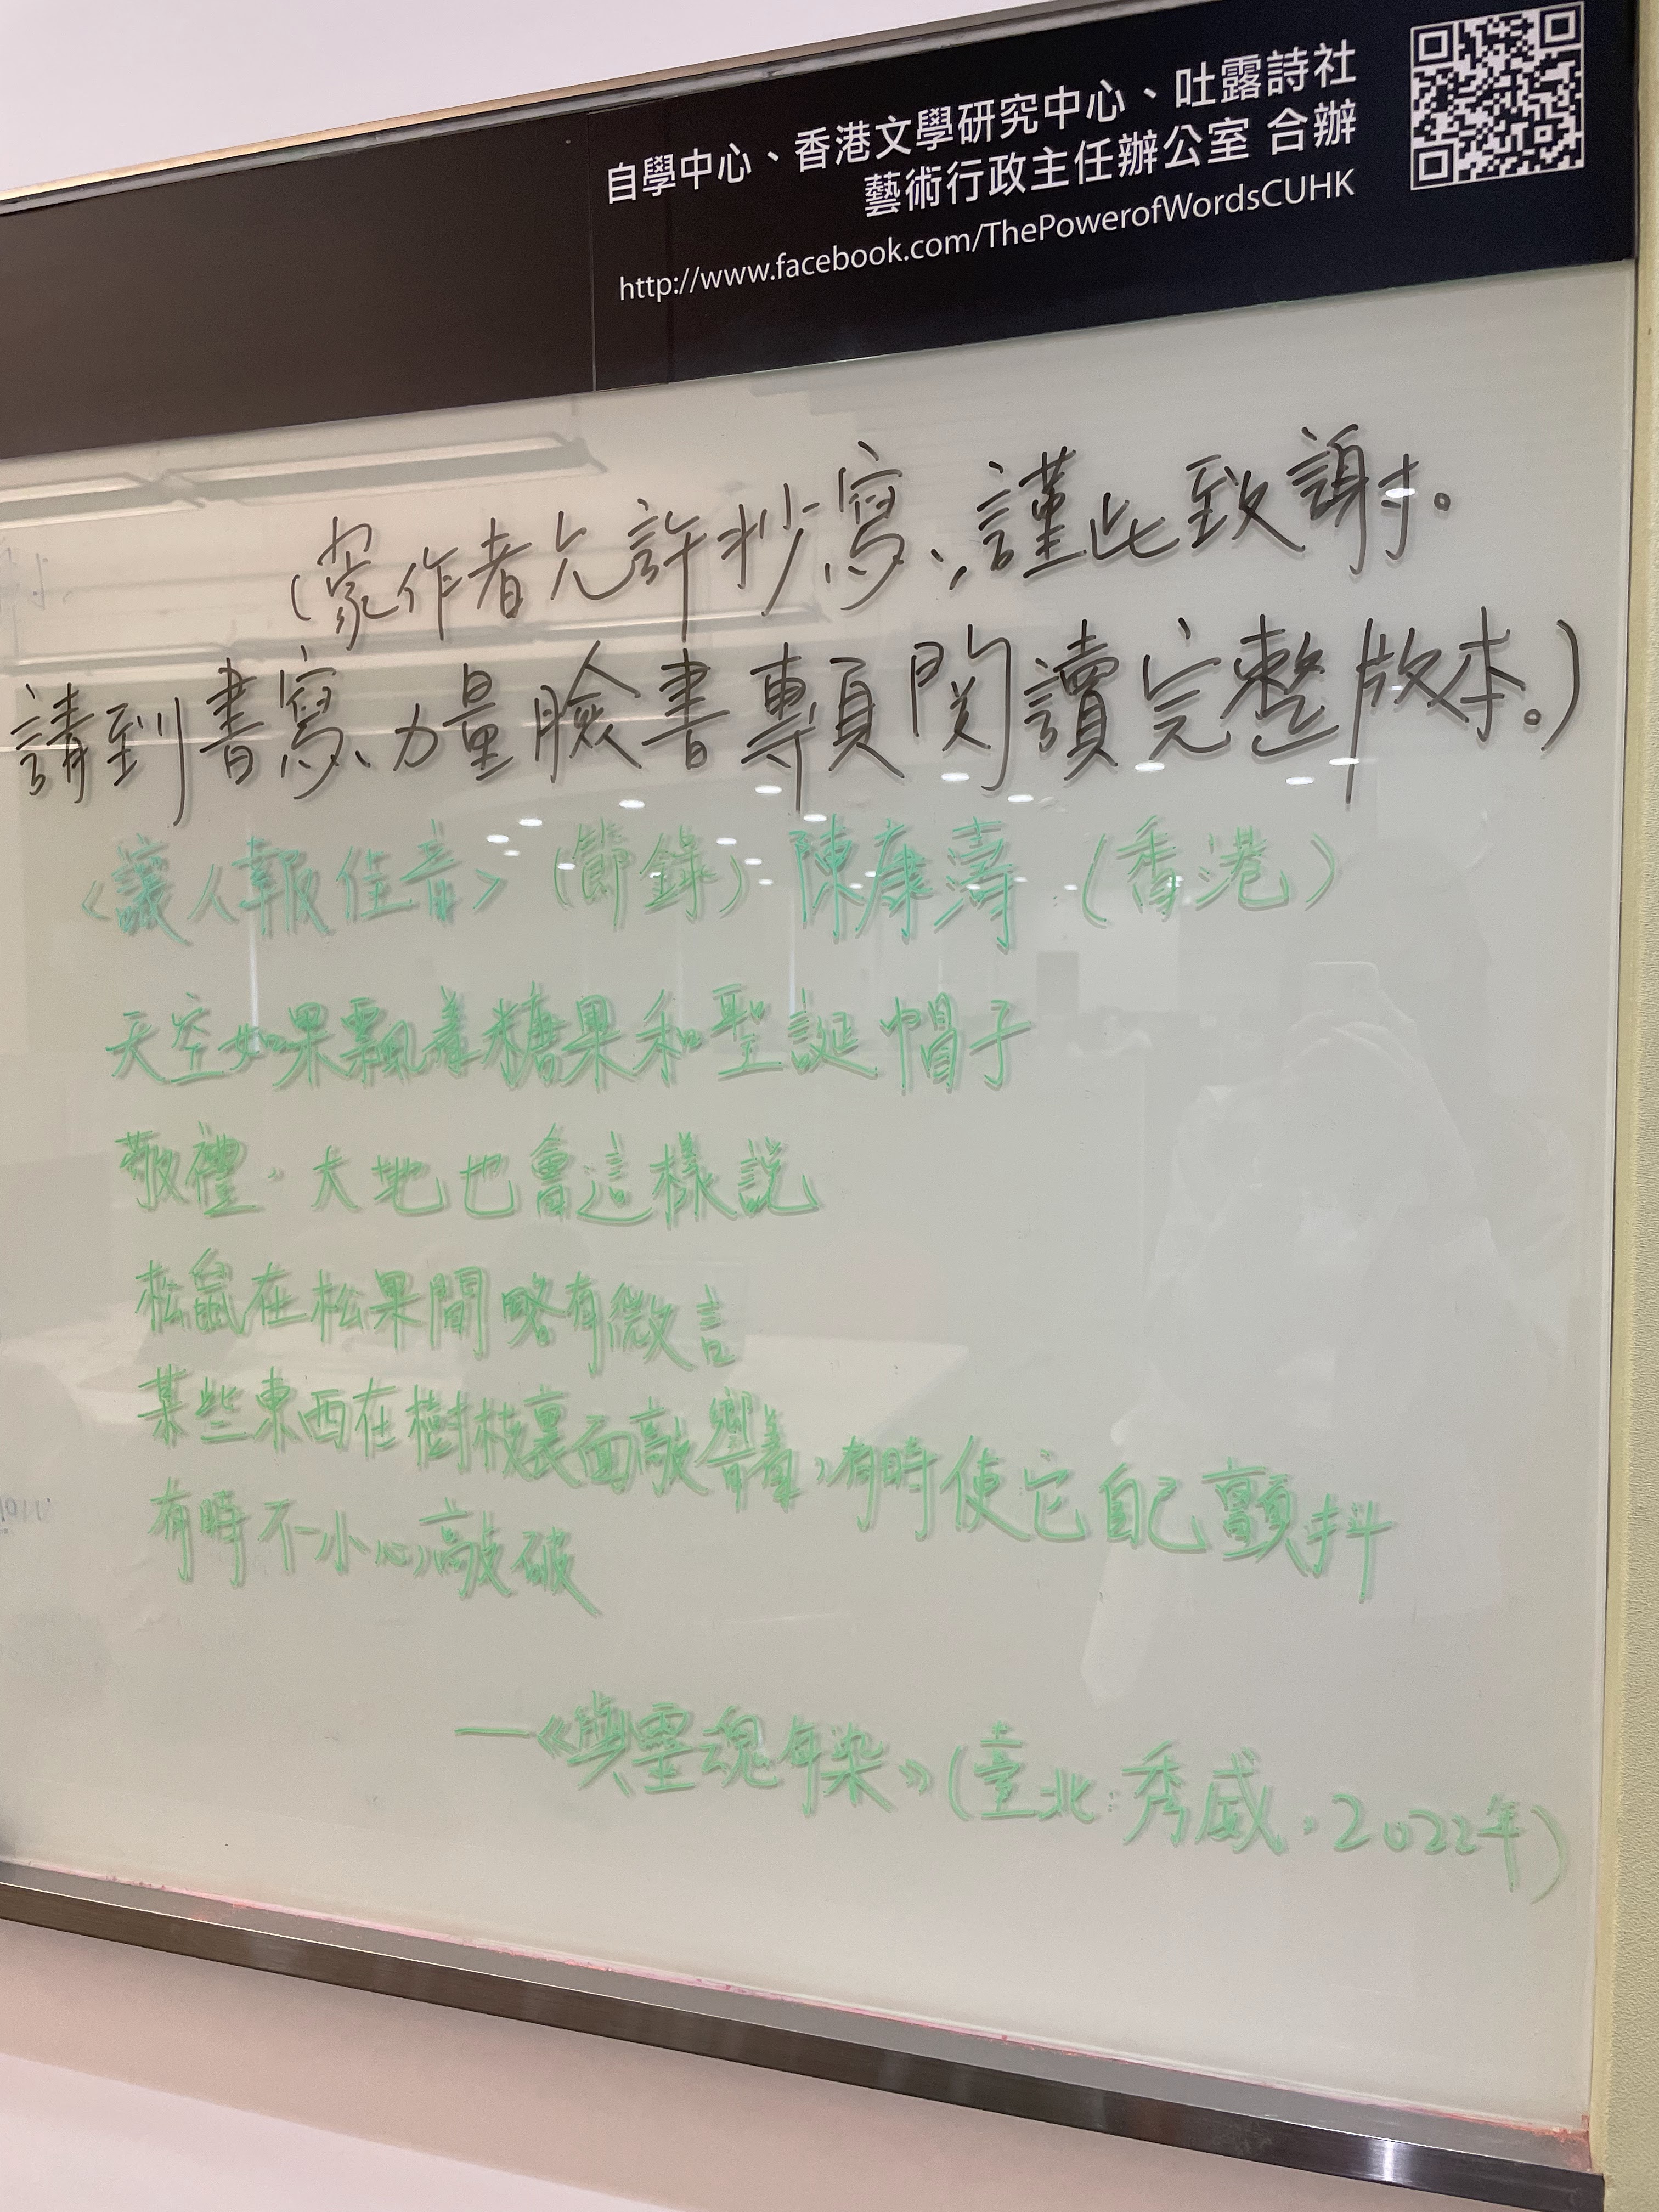 自學中心、香港文學研究中心、吐露詩社
藝術行政主任辦公室 合辦
http://www.facebook.com/ThePowerofWordsCUHK
(蒙作者允許抄寫，謹此致謝。
請到書寫力量臉書專頁閱讀完整版本。)
〈讓人報佳音〉(節錄) 陳康濤 (香港)
天空如果飄着糖果和聖誕帽子
敬禮，大地也會這樣說
松鼠在松果間略有微言
某些東西在樹枝裏面敲響着，有時使它自己顫抖
有時不小心敲破
—《與靈魂有染》(臺北：秀威，2022年)